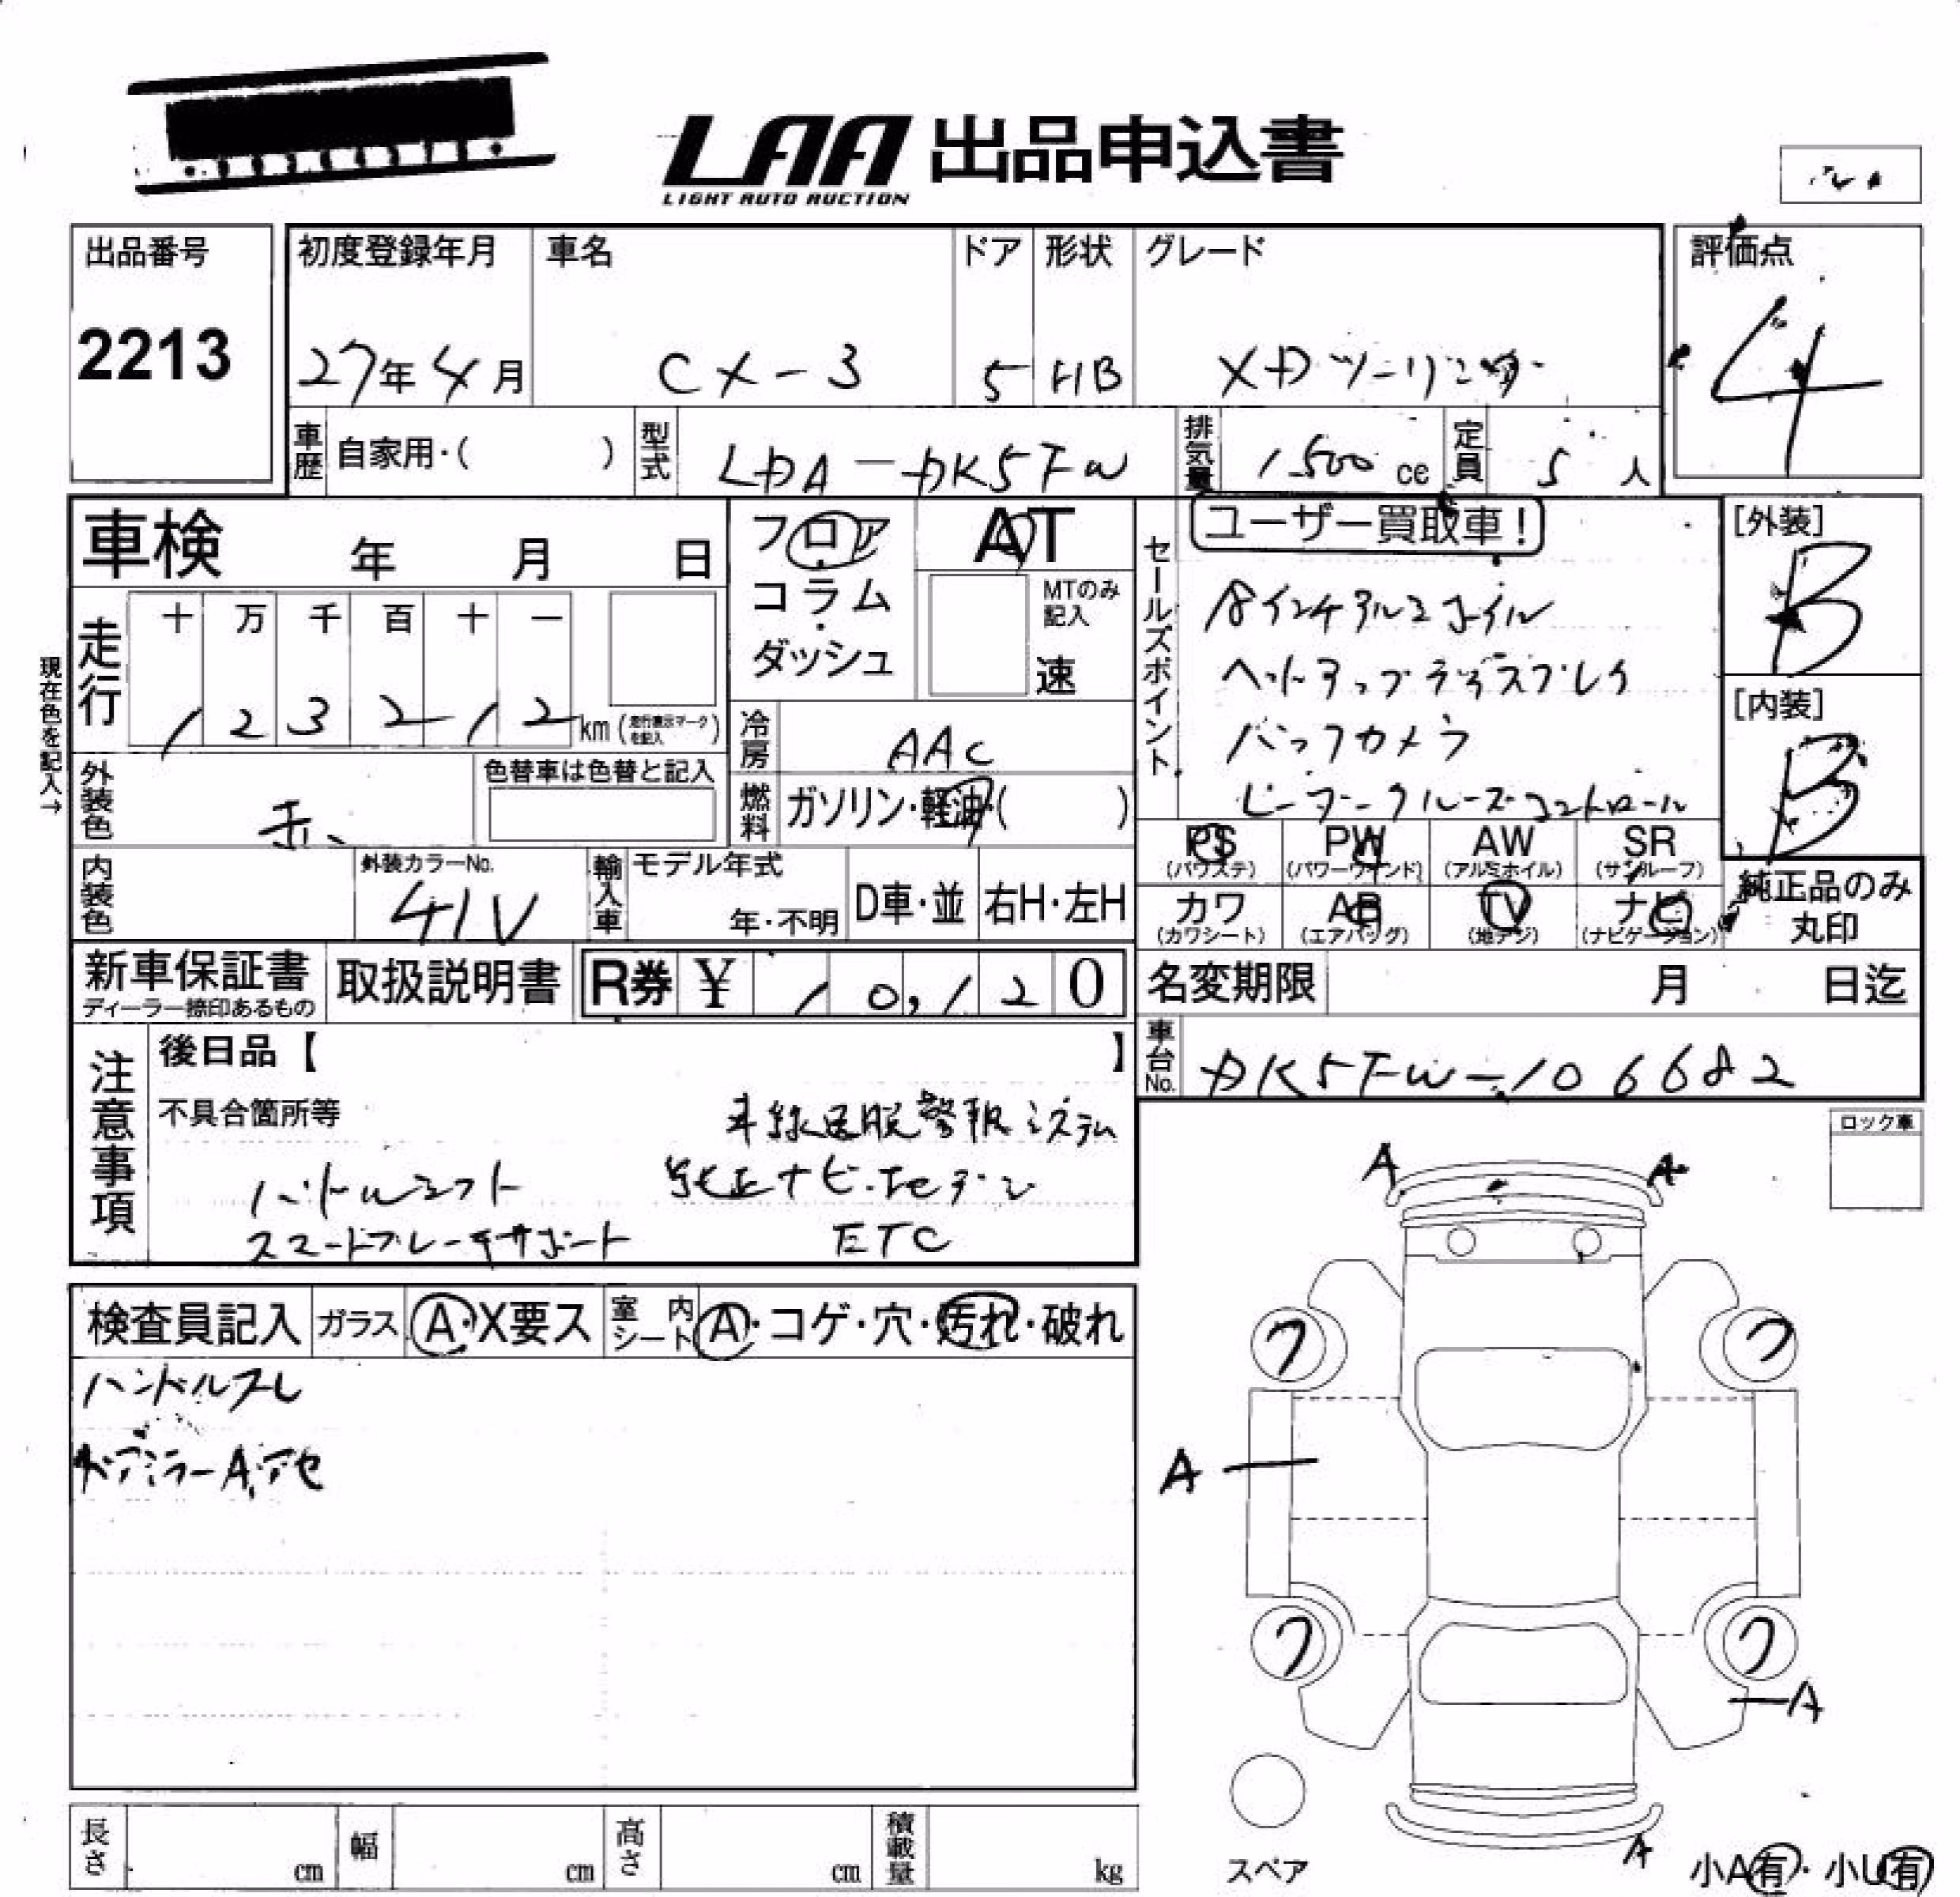 LAA 出品申込書
LIGHT AUTO AUCTION
出品番号
2213
初度登録年月
27年4月
車名
CX-3
ドア
5
形状
HB
グレード
XDツーリング
評価点
4
車歴
自家用・( )
型式
LDA-DK5FW
排気量
1500 cc
定員
5 人
車検 年 月 日
フロア
コラム
ダッシュ
AT
MTのみ記入
速
セールズポイント
ユーザー買取車!
18インチアルミホイル
ヘッドアップディスプレイ
バックカメラ
レーダークルーズコントロール
[外装]
B
[内装]
B
現在色を記入→
走行
十 万 千 百 十 一
1 2 3 2 1 2 km (走行表示マークを記入)
冷房
AAC
外装色
赤
色替車は色替と記入
燃料
ガソリン・軽油・( )
内装色
外装カラーNo.
41V
輸入車
モデル年式
年・不明
D車・並
右H・左H
PS
(パワステ)
PW
(パワーウインド)
AW
(アルミホイル)
SR
(サンルーフ)
カワ
(カワシート)
AB
(エアバッグ)
TV
(地デジ)
ナビ
(ナビゲーション)
純正品のみ
丸印
新車保証書
ディーラー捺印あるもの
取扱説明書
R券 ¥ 10,120
名変期限 月 日迄
車台No.
DK5FW-106682
注意事項
後日品【 】
不具合箇所等
車線逸脱警報システム
ハンドルシフト
純正ナビ・地デジ
スマートブレーキサポート
ETC
ロック車
検査員記入
ガラス
A・X要ス
室内シート
A・コゲ・穴・汚れ・破れ
ハンドルスレ
ドアミラーA,アセ
A A
フ フ
A
フ フ
A
A
スペア
小A有・小U有
長さ cm
幅 cm
高さ cm
積載量 kg